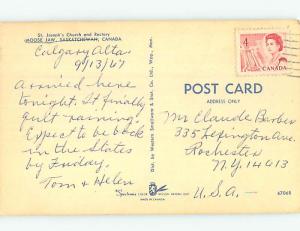 St. Joseph's Church and Rectory
MOOSE JAW, SASKATCHEWAN, CANADA
Calgary Alta
9/13/67
Arrived here
tonight. It finally
quit raining.
Expect to be back
in the States
by Friday.
Tom & Helen
Dist. by Western Souvenirs &
4
CANADA
POST CARD
ADDRESS ONLY
Mr Claude Barber
335 Lexington Ave.
Rochester
N.Y. 14413
U.S.A.
MADE IN CANADA
67068